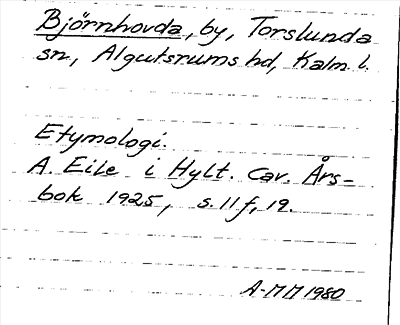 Björnhovda, by, Torslunda
sn, Algutsrums hd, Kalm. l.
Etymologi.
A. Eile i Hylt. Cav. Års-
bok 1925, s. 11 f, 19.
A-MM 1980